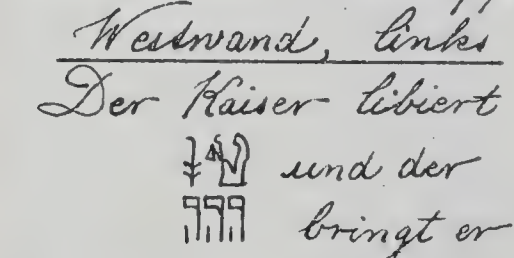 Westwand, links
Der Kaiser libiert
und der
𓊹𓊹𓊹 bringt er